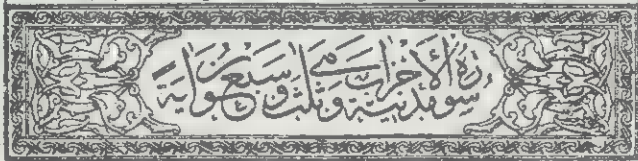 سورة الأحزاب مدنية وهي ثلث وسبعون آية